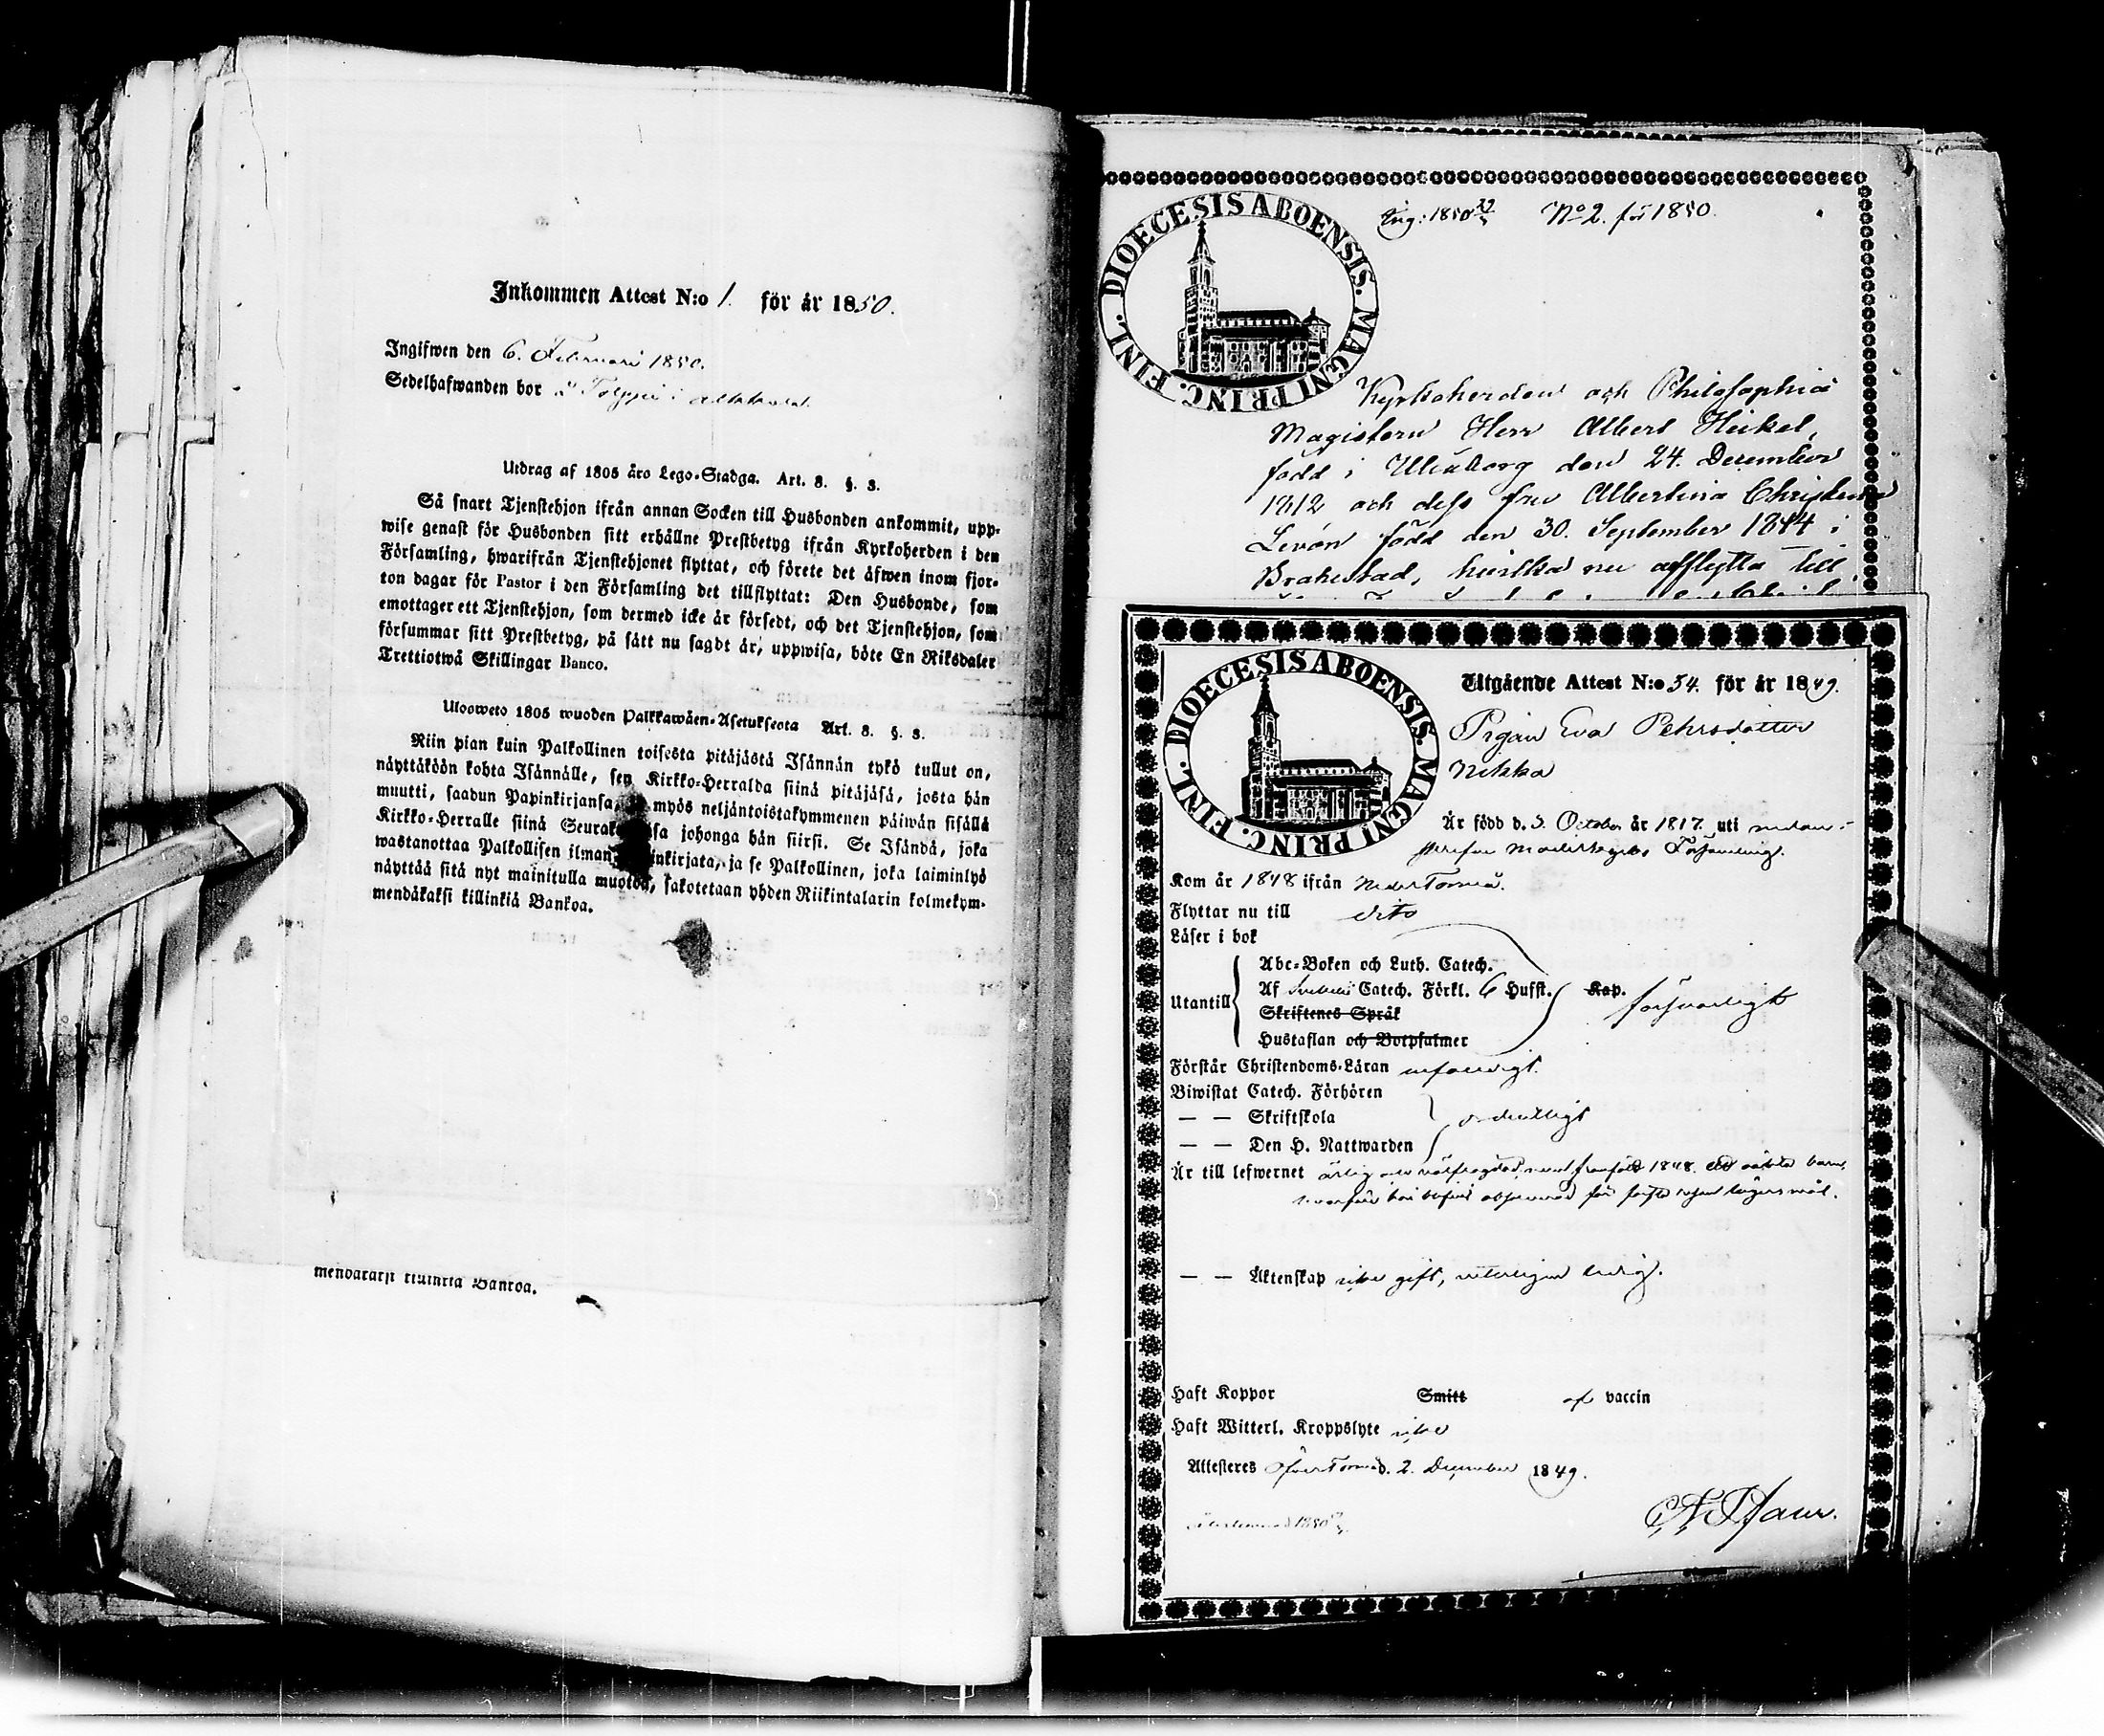 Inkommen Attest N:o 1. för år 1850.
Ingifwen den 6. Februari 1850.
Sedelhafwanden bor i
Utdrag af 1805 åro Lego-Stadga. Art. 8. §. 3.
Så snart Tjenstehjon ifrån annan Socken till Husbonden ankommit, upp-
wise genast för Husbonden sitt erhållne Prestbetyg ifrån Kyrkoherden i den
Församling, hwarifrån Tjenstehjonet flyttat, och förete det äfwen inom fjor-
ton dagar för Pastor i den Församling det tillflyttat: Den Husbonde, som
emottager ett Tjenstehjon, som dermed icke är försedt, och det Tjenstehjon, som
försummar sitt Prestbetyg, på sätt nu sagdt är, uppwisa, böte En Riksdaler
Trettiotwå Skillingar Banco.
Uloosweto 1805 wuoden Palkkawäen-Asetuksesta Art. 8. §. 3.
Niin pian kuin Palkollinen toisesta pitäjästä Isännän tykö tullut on,
näyttäköön kohta Isännälle, sen Kirkko-Herralda siinä pitäjäsä, josta hän
muutti, saadun Papinkirjansa, myös neljäntoistakymmenen päiwän sisällä
Kirkko-Herralle siinä johonga hän siirsi. Se Isändä, joka
wastanottaa Palkollisen ilman ja se Palkollinen, joka laiminlyö
näyttää sitä nyt mainitulla muotoa, sakotetaan yhden Riikintalarin kolmekym-
mendäkaksi killinkiä Bankoa.
mendäkaksi killinkiä Bankoa.
DIOECESIS ABOENSIS. MAGNI PRINC. FINL.
Ing: 1850 No 2. för 1850.
Kyrkoherden och Philosophiæ
Magistern Herr Albert Heikel,
född i Uleåborg den 24. December
1812 och dess fru Albertina Christina
Levón född den 30. September 1844 i
Brahestad, hvilka nu afflytta till
DIOECESIS ABOENSIS. MAGNI PRINC. FINL.
Utgående Attest N:o 34. för år 1849.
Pigan Eva Pehrsdotter
Nikka
Är född d. 3. October år 1817. uti
Församling.
Kom år 1848 ifrån Neder Torneå.
Flyttar nu till dito
Läser i bok
Abc-Boken och Luth. Catech.
Utantill Af Svebelii Catech. Förkl. 6 Hufst. Kap. försvarligt
Skriftenes Språk
Hustaflan och Botpsalmer
Förstår Christendoms-Läran
Biwistat Catech. Förhören
— — Skriftskola ordentligt
— — Den H. Nattwarden
Är till lefwernet ärlig och 1848. barn,
— — Äktenskap icke gift, veterligen ledig.
Haft Koppor Smitt af vaccin
Haft Witterl. Kroppslyte icke
Attesteres Öfver Torneå d. 2. December 1849.